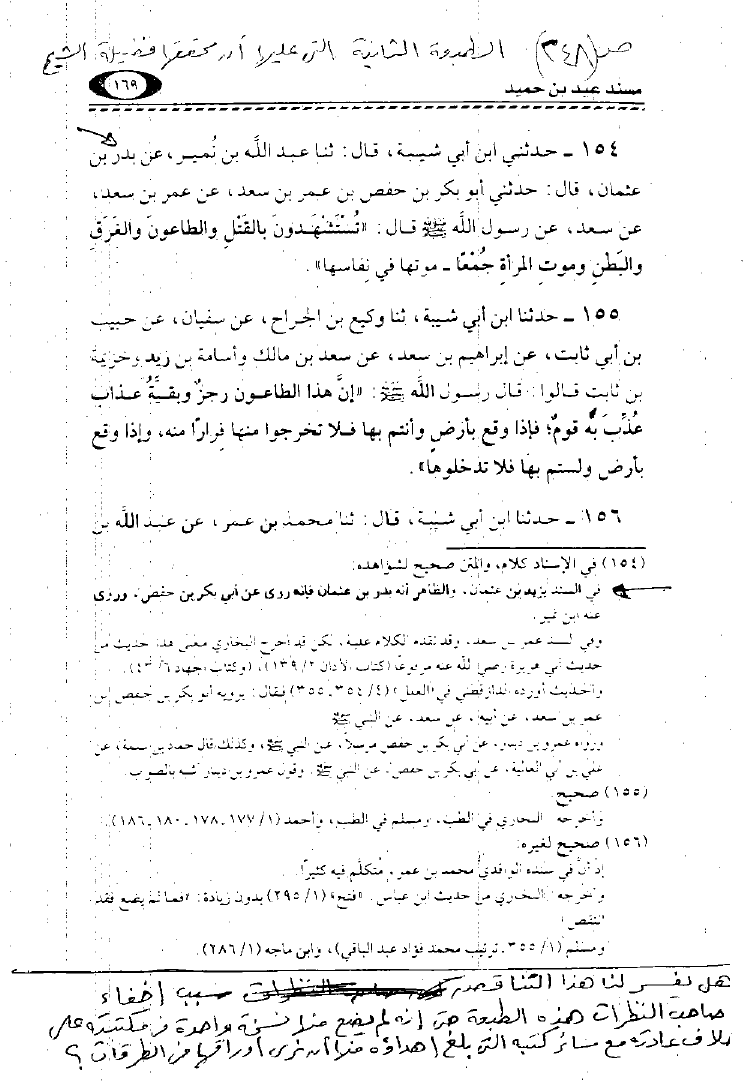 ص (٣٤٨) الطبعة الثانية التي عليها أن محققها فضيلة الشيخ
مسند عبد بن حميد
١٦٩
١٥٤ ـ حدثني ابن أبي شيبة، قال: ثنا عبد الله بن نُمير، عن بدر بن
عثمان، قال: حدثني أبو بكر بن حفص بن عمر بن سعد، عن عمر بن سعد،
عن سعد، عن رسول اللَّه ﷺ قال: «تُسْتَشْهَدونَ بالقَتْلِ والطاعونَ والغَرَقِ
والبَطْنِ وموتِ المرأةِ جُمْعًا ـ موتها في نِفاسها».
١٥٥ ـ حدثنا ابن أبي شيبة، ثنا وكيع بن الجراح، عن سفيان، عن حبيب
بن أبي ثابت، عن إبراهيم بن سعد، عن سعد بن مالك وأسامة بن زيد وخزيمة
بن ثابت قالوا: قال رسول اللَّه ﷺ: «إنَّ هذا الطاعون رجزٌ وبقيةُ عذاب
عُذِّبَ بِه قومٌ؛ فإذا وقع بأرضٍ وأنتم بها فلا تخرجوا منها فِرارًا منه، وإذا وقع
بأرض ولستم بها فلا تدخلوها».
١٥٦ ـ حدثنا ابن أبي شيبة، قال: ثنا محمد بن عمر، عن عبد الله بن
(١٥٤) في الإسناد كلام، والمتن صحيح لشواهده:
في السند يزيد بن عثمان، والظاهر أنه بدر بن عثمان فإنه روى عن أبي بكر بن حفص، وروى
عنه ابن نمير.
وفي السند عمر بن سعد، وقد تقدم الكلام عليه، لكن قد أخرج البخاري معنى هذا حديث من
حديث أبي هريرة رضي الله عنه مرفوعًا (كتاب الأذان ٢/ ١٣٩)، (وكتاب الجهاد ٦/ ٤٣).
والحديث أورده الدارقطني في «العلل» (٤/ ٣٥٤، ٣٥٥) فقال: يرويه أبو بكر بن حفص ابن
عمر بن سعد، عن أبيه، عن سعد، عن النبي ﷺ
ورواه عمرو بن دينار، عن أبي بكر بن حفص مرسلاً، عن النبي ﷺ، وكذلك قال حماد بن سلمة، عن
علي بن أبي العالية، عن أبي بكر بن حفص، عن النبي ﷺ، وقول عمرو بن دينار أشبه بالصواب.
(١٥٥) صحيح:
وأخرجه البخاري في الطب، ومسلم في الطب، وأحمد (١/ ١٧٧، ١٧٨، ١٨٠، ١٨٦).
(١٥٦) صحيح لغيره:
إذ أنَّ في سنده الواقدي محمد بن عمر، مُتكلَّم فيه كثيرًا.
وأخرجه البخاري من حديث ابن عباس، «فتح» (١/ ٢٩٥) بدون زيادة: «فما لم يضع فقد
انتقص»
ومسلم (١/ ٣٥٥، ترتيب محمد فؤاد عبد الباقي)، وابن ماجه (١/ ٢٨٦).
هل يفسر لنا هذا التناقض سبب إخفاء
صاحب النظرات هذه الطبعة حتى إنه لم يضع منها نسخة واحدة في مكتبته على
خلاف عادته مع سائر كتبه التي بلغ إهداؤه منها أن نرى أوراقها في الطرقات ؟